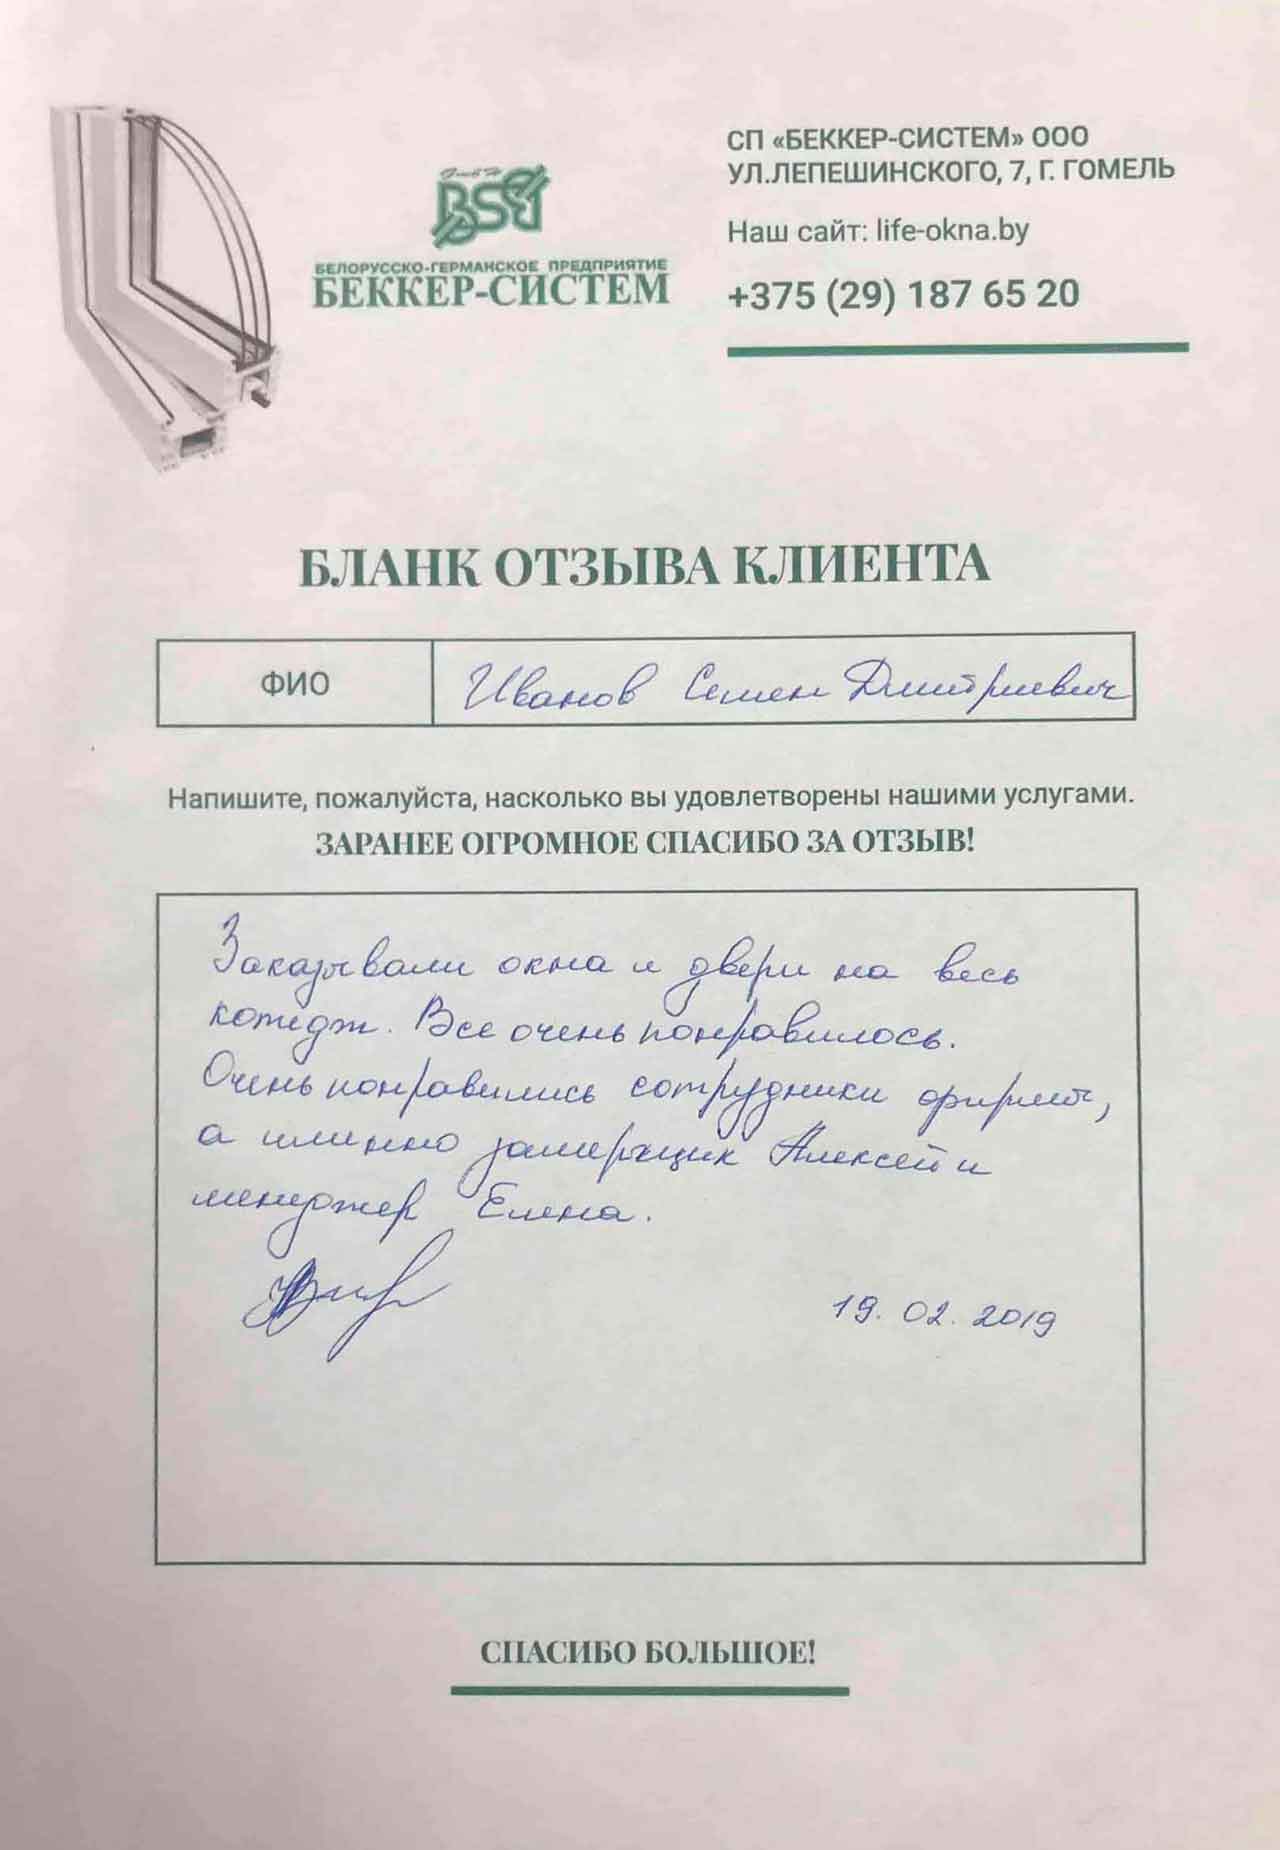 СП «БЕККЕР-СИСТЕМ» ООО
УЛ.ЛЕПЕШИНСКОГО, 7, Г. ГОМЕЛЬ
Наш сайт: life-okna.by
+375 (29) 187 65 20
GmbH
BSG
БЕЛОРУССКО-ГЕРМАНСКОЕ ПРЕДПРИЯТИЕ
БЕККЕР-СИСТЕМ
БЛАНК ОТЗЫВА КЛИЕНТА
ФИО Иванов Семен Дмитриевич
Напишите, пожалуйста, насколько вы удовлетворены нашими услугами.
ЗАРАНЕЕ ОГРОМНОЕ СПАСИБО ЗА ОТЗЫВ!
Заказывали окна и двери на весь
котедж. Все очень понравилось.
Очень понравились сотрудники фирмы,
а именно замерщик Алексей и
менеджер Елена.
19.02.2019
СПАСИБО БОЛЬШОЕ!